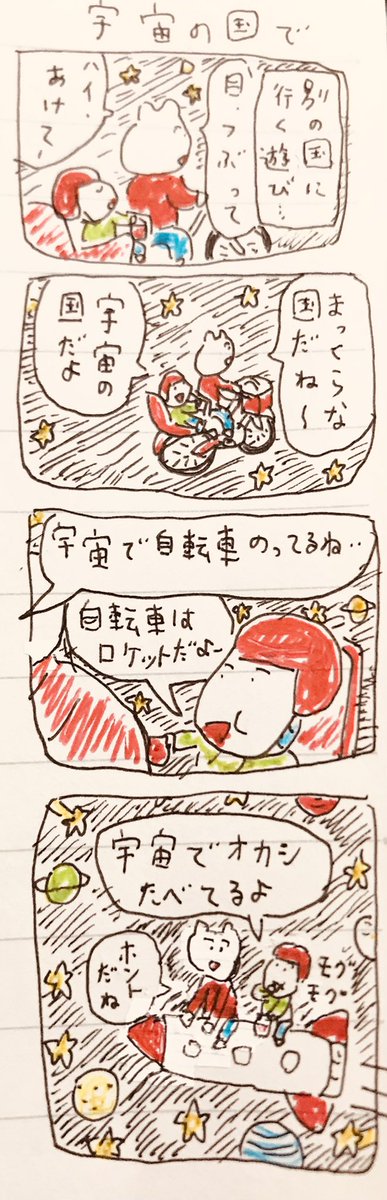 宇宙の国で
別の国に
行く遊び…
目、つぶって
ハイ、
あけて、
まっくらな
国だね〜
宇宙の
国だよ
宇宙で自転車のってるね‥
自転車は
ロケットだよ〜
宇宙でオカシ
たべてるよ
ホント
だね
モグ
モグ